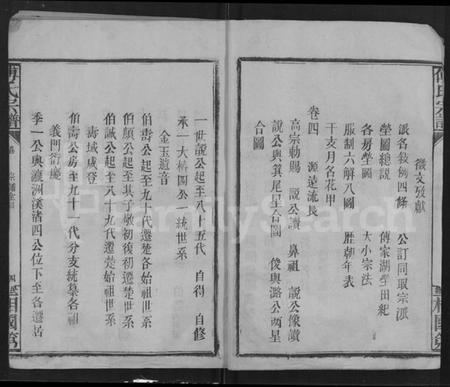 傅氏宗譜
徵文攷獻
派名敍例四條 公訂同取宗派
塋圖總說 傅家湖塋田紀
各房塋圖 大小宗法
服制六解八圖 歷朝年表
干支月名花甲
卷四 源遠流長
高宗勅賜 說公讚 鼻祖 說公像讚
說公與箕尾星合圖 俊與潞公兩星
合圖
相國第
一世說公起至八十五代 自得 自修
承一大椿國公一統世系
金玉遺音
伯壽公起至九十代遷楚各始祖世系
伯顏公起至其子墩初後初遷楚世系
伯誠公起至八十九代遷楚始祖世系
壽域咸登
伯壽公房至九十一代分支統集各祖
義門衍慶
季一公與瀛洲溪渚四公位下至各遷居
傅氏宗譜
相國第
FamilySearch